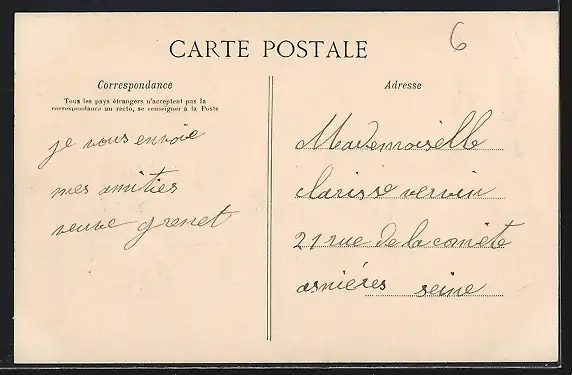 CARTE POSTALE
6
Correspondance
Tous les pays étrangers n'acceptent pas la
correspondance au recto, se renseigner à la Poste
je vous envoie
mes amitiés
veuve grenet
Adresse
Mademoiselle
clarisse vervin
21 rue de la comète
asnières seine